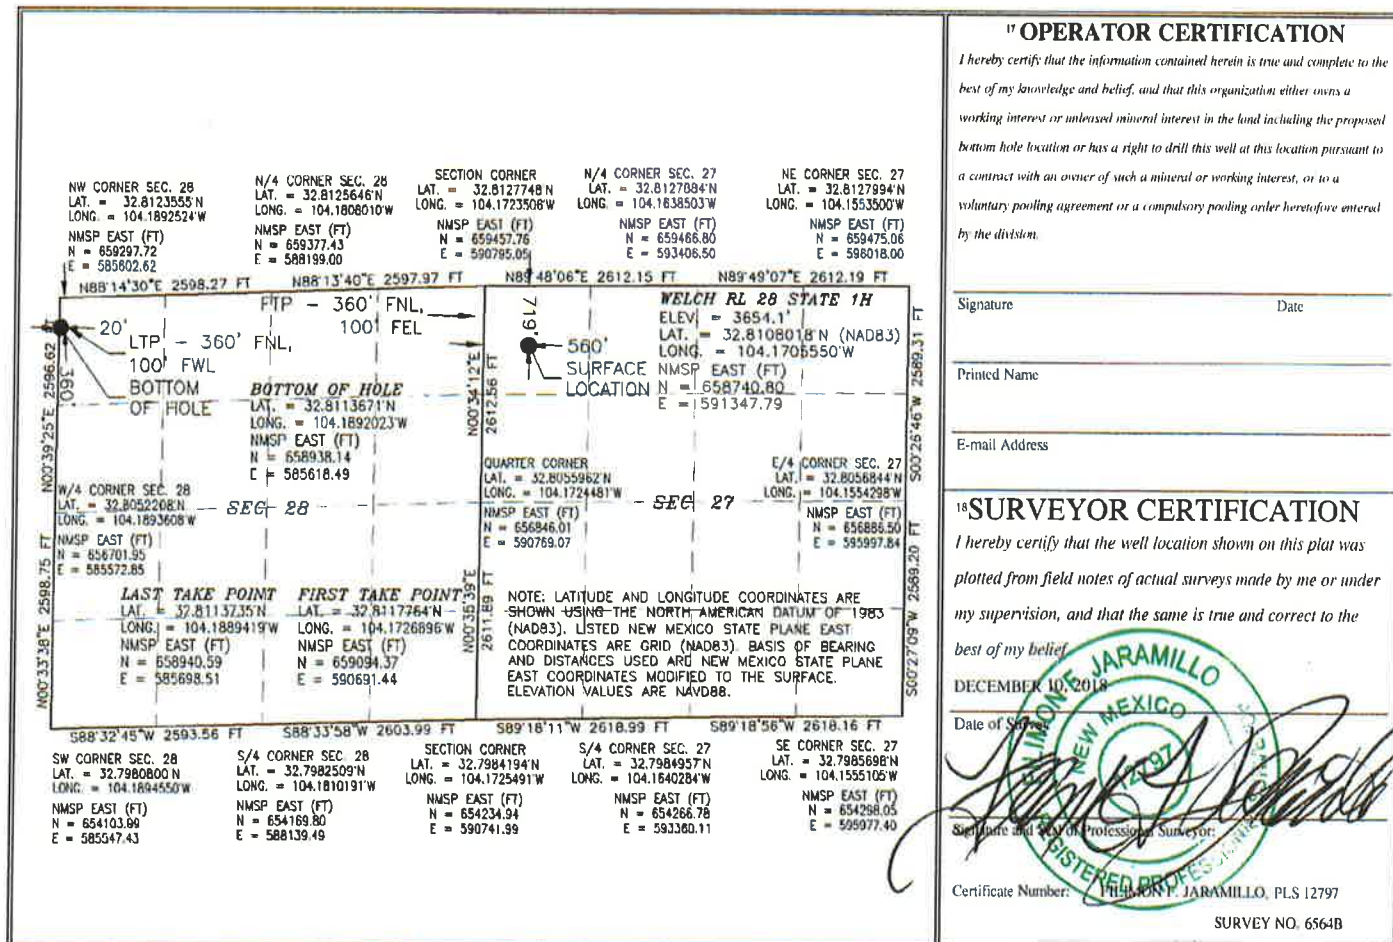 NW CORNER SEC. 28
LAT. = 32.8123555'N
LONG. = 104.1892524'W
NMSP EAST (FT)
N = 659297.72
E = 585602.62
N/4 CORNER SEC. 28
LAT. = 32.8125646'N
LONG. = 104.1808010'W
NMSP EAST (FT)
N = 659377.43
E = 588199.00
SECTION CORNER
LAT. = 32.8127748'N
LONG. = 104.1723506'W
NMSP EAST (FT)
N = 659457.76
E = 590795.05
N/4 CORNER SEC. 27
LAT. = 32.8127884'N
LONG. = 104.1638503'W
NMSP EAST (FT)
N = 659466.80
E = 593406.50
NE CORNER SEC. 27
LAT. = 32.8127994'N
LONG. = 104.1553500'W
NMSP EAST (FT)
N = 659475.06
E = 596018.00
N88'14'30"E 2598.27 FT
N88'13'40"E 2597.97 FT
N89'48'06"E 2612.15 FT
N89'49'07"E 2612.19 FT
FTP - 360' FNL,
100' FEL
20'
LTP - 360' FNL,
100' FWL
BOTTOM
OF HOLE
360'
719'
560'
SURFACE
LOCATION
WELCH RL 28 STATE 1H
ELEV = 3654.1'
LAT. = 32.8108018'N (NAD83)
LONG. = 104.1705550'W
NMSP EAST (FT)
N = 658740.80
E = 591347.79
BOTTOM OF HOLE
LAT. = 32.8113671'N
LONG. = 104.1892023'W
NMSP EAST (FT)
N = 658938.14
E = 585618.49
N00'39'25"E 2596.62
N00'34'12"E
2612.56 FT
S00'26'46"W 2589.31 FT
W/4 CORNER SEC. 28
LAT. = 32.8052208'N
LONG. = 104.1893608'W
NMSP EAST (FT)
N = 656701.95
E = 585572.85
SEC 28
QUARTER CORNER
LAT. = 32.8055962'N
LONG. = 104.1724481'W
NMSP EAST (FT)
N = 656846.01
E = 590769.07
SEC 27
E/4 CORNER SEC. 27
LAT. = 32.8056844'N
LONG. = 104.1554298'W
NMSP EAST (FT)
N = 656886.50
E = 595997.84
N00'33'38"E 2598.75 FT
N00'35'39"E
2611.89 FT
S00'27'09"W 2569.20 FT
LAST TAKE POINT
LAT. = 32.8113735'N
LONG. = 104.1889419'W
NMSP EAST (FT)
N = 658940.59
E = 585698.51
FIRST TAKE POINT
LAT. = 32.8117764'N
LONG. = 104.1726896'W
NMSP EAST (FT)
N = 659094.37
E = 590691.44
NOTE: LATITUDE AND LONGITUDE COORDINATES ARE
SHOWN USING THE NORTH AMERICAN DATUM OF 1983
(NAD83). LISTED NEW MEXICO STATE PLANE EAST
COORDINATES ARE GRID (NAD83). BASIS OF BEARING
AND DISTANCES USED ARE NEW MEXICO STATE PLANE
EAST COORDINATES MODIFIED TO THE SURFACE.
ELEVATION VALUES ARE NAVD88.
S88'32'45"W 2593.56 FT
S88'33'58"W 2603.99 FT
S89'18'11"W 2618.99 FT
S89'18'56"W 2618.16 FT
SW CORNER SEC. 28
LAT. = 32.7980800'N
LONG. = 104.1894550'W
NMSP EAST (FT)
N = 654103.99
E = 585547.43
S/4 CORNER SEC. 28
LAT. = 32.7982509'N
LONG. = 104.1810191'W
NMSP EAST (FT)
N = 654169.80
E = 588139.49
SECTION CORNER
LAT. = 32.7984194'N
LONG. = 104.1725491'W
NMSP EAST (FT)
N = 654234.94
E = 590741.99
S/4 CORNER SEC. 27
LAT. = 32.7984957'N
LONG. = 104.1640284'W
NMSP EAST (FT)
N = 654266.78
E = 593360.11
SE CORNER SEC. 27
LAT. = 32.7985698'N
LONG. = 104.1555105'W
NMSP EAST (FT)
N = 654298.05
E = 595977.40
17 OPERATOR CERTIFICATION
I hereby certify that the information contained herein is true and complete to the
best of my knowledge and belief, and that this organization either owns a
working interest or unleased mineral interest in the land including the proposed
bottom hole location or has a right to drill this well at this location pursuant to
a contract with an owner of such a mineral or working interest, or to a
voluntary pooling agreement or a compulsory pooling order heretofore entered
by the division.
Signature Date
Printed Name
E-mail Address
18 SURVEYOR CERTIFICATION
I hereby certify that the well location shown on this plat was
plotted from field notes of actual surveys made by me or under
my supervision, and that the same is true and correct to the
best of my belief.
DECEMBER 10, 2018
Date of Survey
FILIMON F. JARAMILLO
NEW MEXICO
12797
REGISTERED PROFESSIONAL
Signature and Seal of Professional Surveyor:
Certificate Number: FILIMON F. JARAMILLO, PLS 12797
SURVEY NO. 6564B